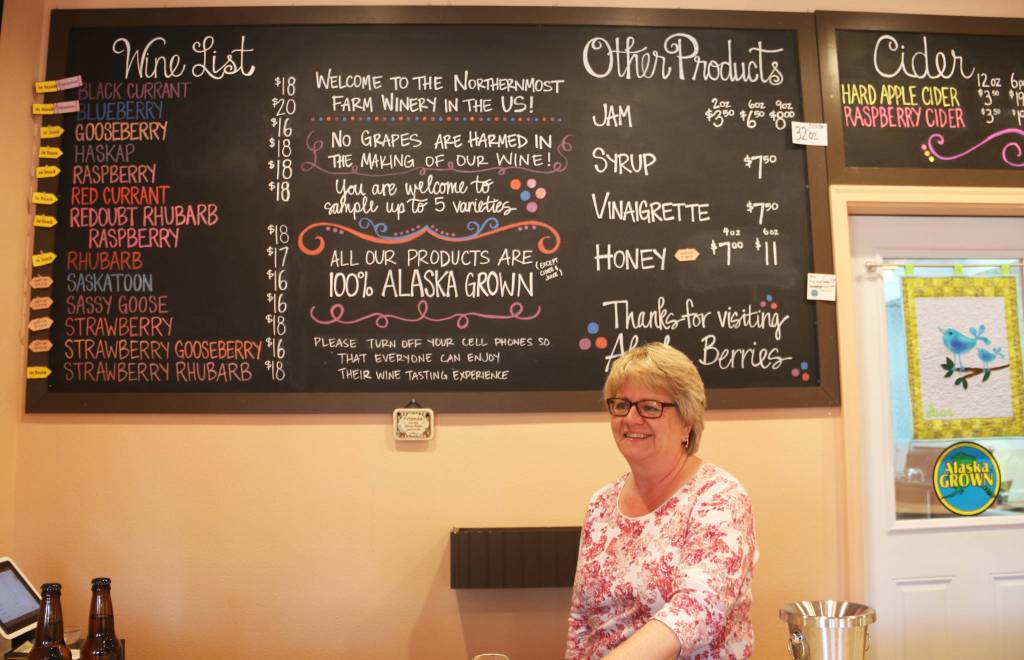 Wine List
BLACK CURRANT $18
BLUEBERRY $20
GOOSEBERRY $16
HASKAP $18
RASPBERRY $18
RED CURRANT $18
REDOUBT RHUBARB
RASPBERRY $18
RHUBARB $17
SASKATOON $16
SASSY GOOSE $16
STRAWBERRY $18
STRAWBERRY GOOSEBERRY $16
STRAWBERRY RHUBARB $18
WELCOME TO THE NORTHERNMOST
FARM WINERY IN THE US!
NO GRAPES ARE HARMED IN
THE MAKING OF OUR WINE!
YOU ARE WELCOME TO
SAMPLE UP TO 5 VARIETIES
ALL OUR PRODUCTS ARE
(EXCEPT
CIDER &
JUICE)
100% ALASKA GROWN
PLEASE TURN OFF YOUR CELL PHONES SO
THAT EVERYONE CAN ENJOY
THEIR WINE TASTING EXPERIENCE
Other Products
2oz 6oz 9oz
JAM $3.50 $6.50 $8.00
32oz
SYRUP $7.50
VINAIGRETTE $7.50
4oz 6oz
HONEY $7.00 $11
Thanks for visiting
Berries
Cider
12oz
HARD APPLE CIDER $3.50
RASPBERRY CIDER $3.50
Alaska
GROWN